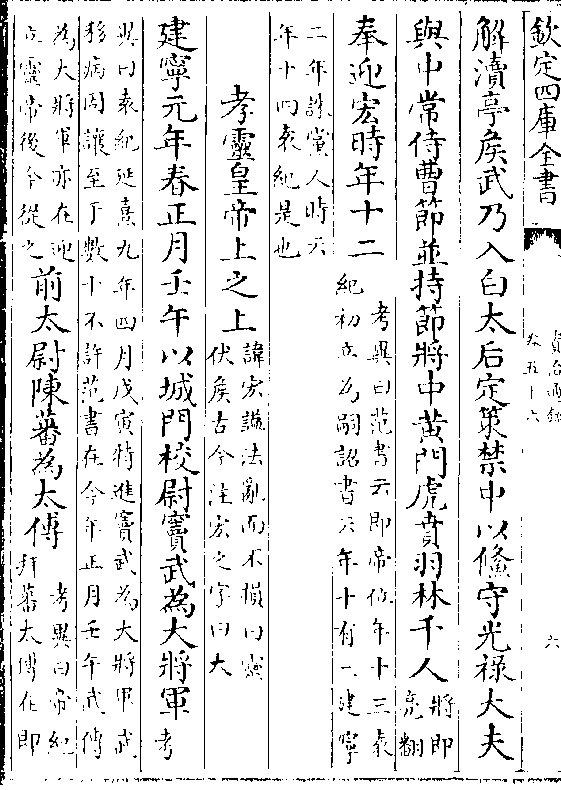 欽定四庫全書
資治通鑑
卷五十六
六
解瀆亭侯武乃入白太后定策禁中以儵守光祿大夫
與中常侍曹節並持節將中黃門虎賁羽林千人將即亮翻
奉迎宏時年十二考異曰范書云即帝位年十三袁紀初立為嗣詔書云年十有一建寧
二年誅黨人時云年十四袁紀是也
孝靈皇帝上之上諱宏諡法亂而不損曰靈伏侯古今注宏之字曰大
建寧元年春正月壬午以城門校尉竇武為大將軍考
異曰袁紀延熹九年四月戊寅特進竇武為大將軍武移病固讓至于數十不許范書在今年正月壬午武傳
為大將軍亦在迎立靈帝後今從之前太尉陳蕃為太傅考異曰帝紀拜蕃太傅在即